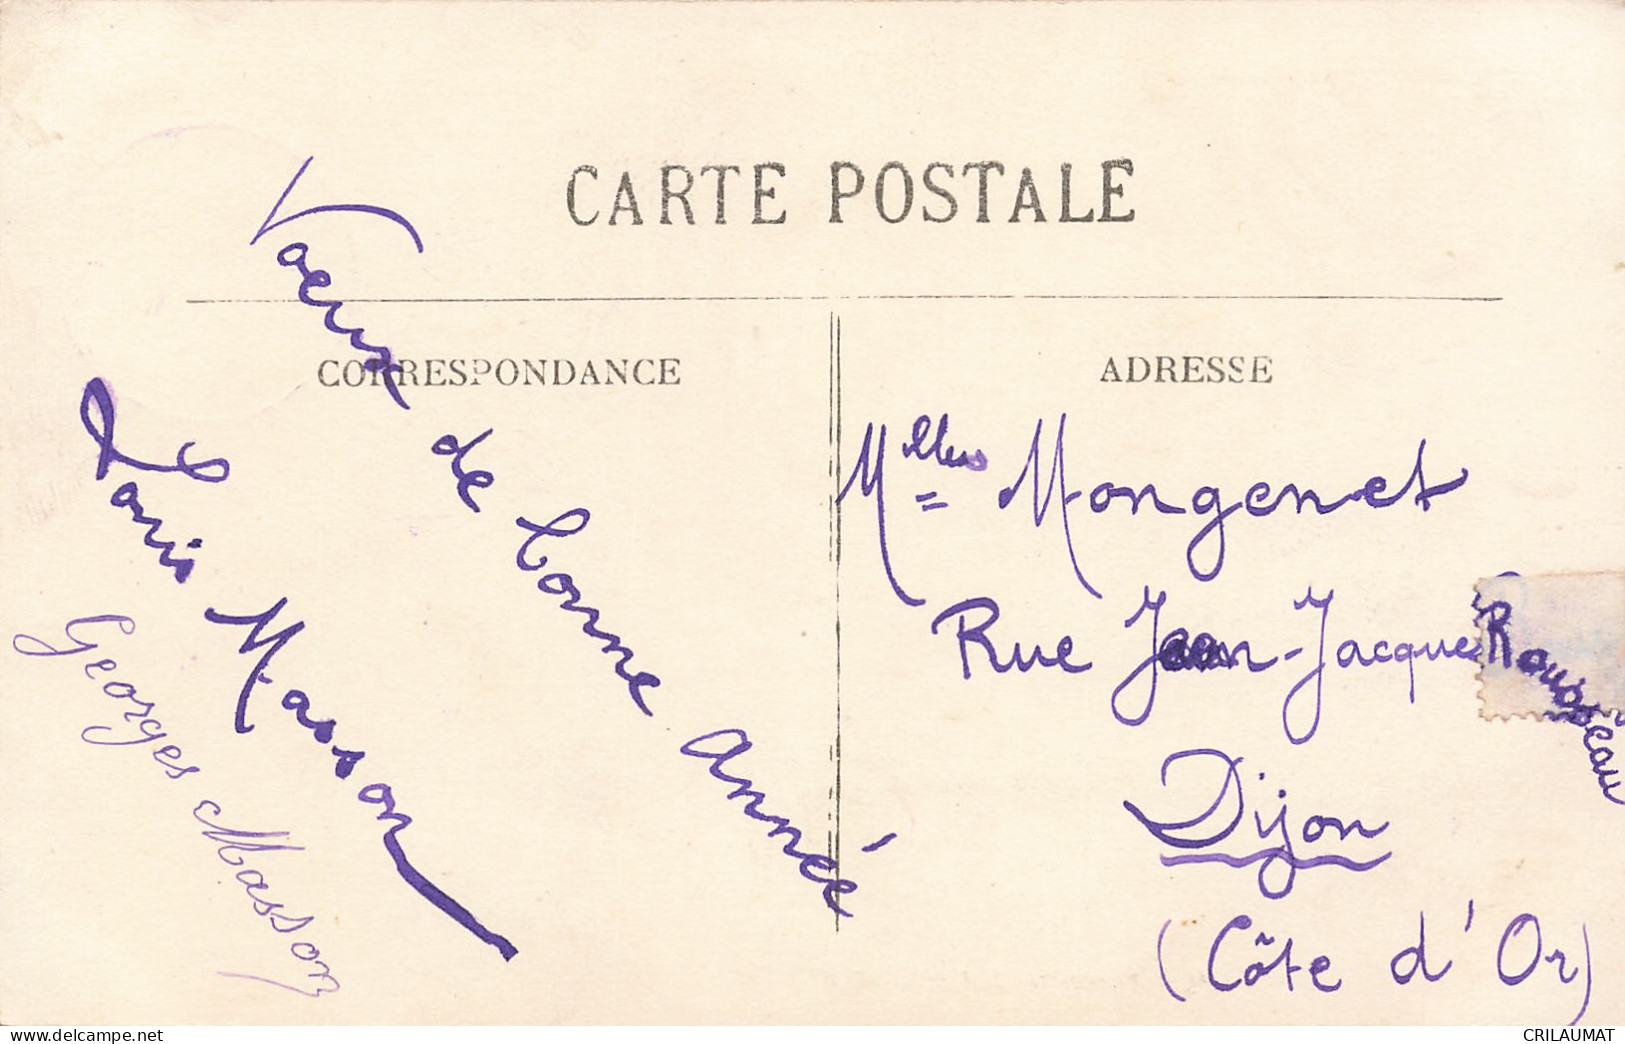 CARTE POSTALE
CORRESPONDANCE
Voeux de bonne année
Louis Masson
Georges Masson
ADRESSE
Melles Mongenet
Rue Jean-Jacques Rousseau
Dijon
(Côte d'Or)
delcampe.net
CRILAUMAT